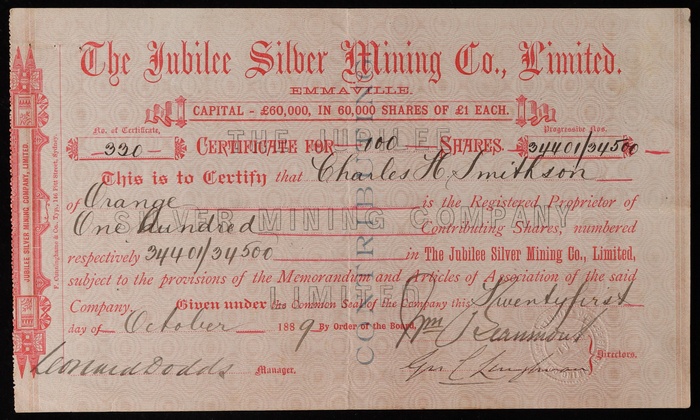 The Jubilee Silver Mining Co., Limited.
EMMAVILLE.
CAPITAL - £60,000, IN 60,000 SHARES OF £1 EACH.
No. of Certificate, Progressive Nos.
320 CERTIFICATE FOR 100 SHARES. 34401/34500
This is to Certify that Charles H. Smithson
of Orange is the Registered Proprietor of
One Hundred Contributing Shares, numbered
respectively 34401/34500 in The Jubilee Silver Mining Co., Limited,
subject to the provisions of the Memorandum and Articles of Association of the said
Company. Given under the Common Seal of the Company this Twenty first
day of October 1889 By Order of the Board,
Wm Beaumont
Leonard Dodds Manager. Directors.
THE JUBILEE
SILVER MINING COMPANY
LIMITED
CONTRIBUTING
JUBILEE SILVER MINING COMPANY, LIMITED.
F. Cunninghame & Co., Typ., 146 Pitt Street, Sydney.